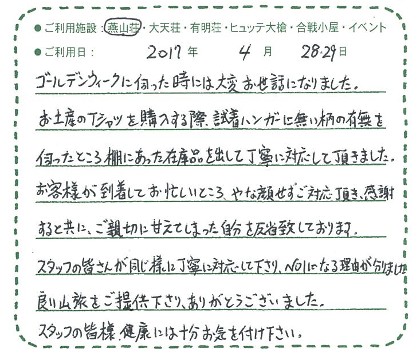 ●ご利用施設：燕山荘・大天荘・有明荘・ヒュッテ大槍・合戦小屋・イベント
●ご利用日： 2017年 4月 28.29日
ゴールデンウィークに伺った時には大変お世話になりました。
お土産のTシャツを購入する際、試着ハンガーに無い柄の有無を
伺ったところ棚にあった在庫品を出して丁寧に対応して頂きました。
お客様が到着してお忙しいところ、やな顔せずご対応頂き、感謝
すると共に、ご親切に甘えてしまった自分を反省致しております。
スタッフの皆さんが同じ様に丁寧に対応して下り、NO1になる理由が分りました
良い山旅をご提供下り、ありがとうございました。
スタッフの皆様、健康には十分お気を付け下さい。